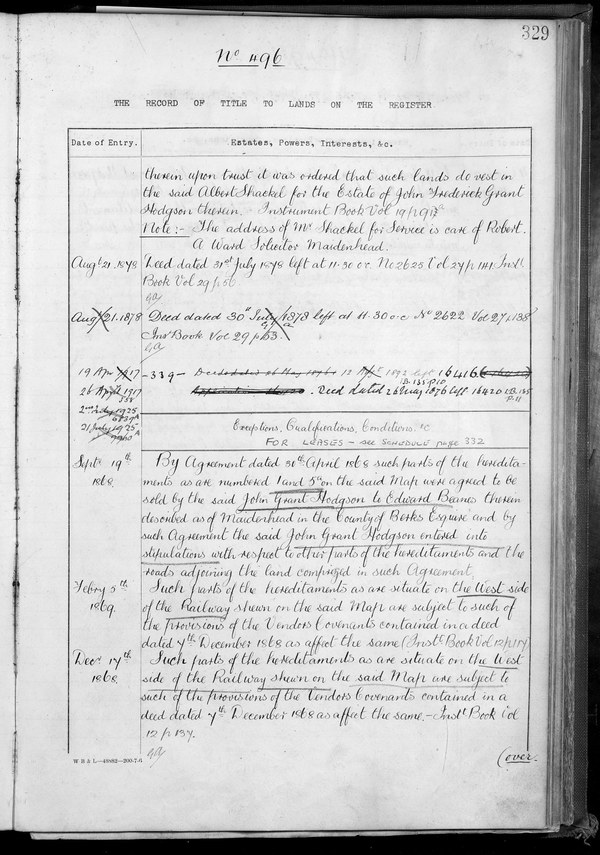 329
No 496
THE RECORD OF TITLE TO LANDS ON THE REGISTER
Date of Entry. Estates, Powers, Interests, &c.
therein upon trust it was ordered that such lands do vest in
the said Albert Shackel for the Estate of John Frederick Grant
Hodgson therein. Instrument Book Vol 19 p 917a
Note:- The address of Mr Shackel for Service is care of Robert
A Ward Solicitor Maidenhead.
Augt 21. 1878 Deed dated 31st July 1878 left at 11.30 o.c. No 2625 Vol 27 p 141 Instt
Book Vol 29 p 56
Aug 21. 1878 Deed dated 30th July 1878 left at 11.30 o.c No 2622 Vol 27 p 138
Inst Book Vol 29 p 53.
19 Apr 1917 -339-
26 April 1917 Deed dated 26 May 1876 left 16420 I.B. 135
p. 11
2nd July 1925
21 July 1925
Exceptions, Qualifications, Conditions, &c
FOR LEASES - see SCHEDULE page 332
Septr 19th By Agreement dated 30th April 1868 such parts of the heredita-
1868 ments as are numbered 1 and 5a on the said Map were agreed to be
sold by the said John Grant Hodgson to Edward Beanes therein
described as of Maidenhead in the County of Berks Esquire and by
such Agreement the said John Grant Hodgson entered into
stipulations with respect to other parts of the hereditaments and the
roads adjoining the land comprized in such Agreement.
Febry 5th Such parts of the hereditaments as are situate on the West side
1869 of the Railway shewn on the said Map are subject to such of
the provisions of the Vendors Covenants contained in a deed
dated 7th December 1868 as affect the same (Instt Book Vol 12 p 137
Decr 17th Such parts of the hereditaments as are situate on the West
1868 side of the Railway shewn on the said Map are subject to
such of the provisions of the Vendors Covenants contained in a
deed dated 7th December 1868 as affect the same. - Instt Book Vol
12 p 137.
(over.